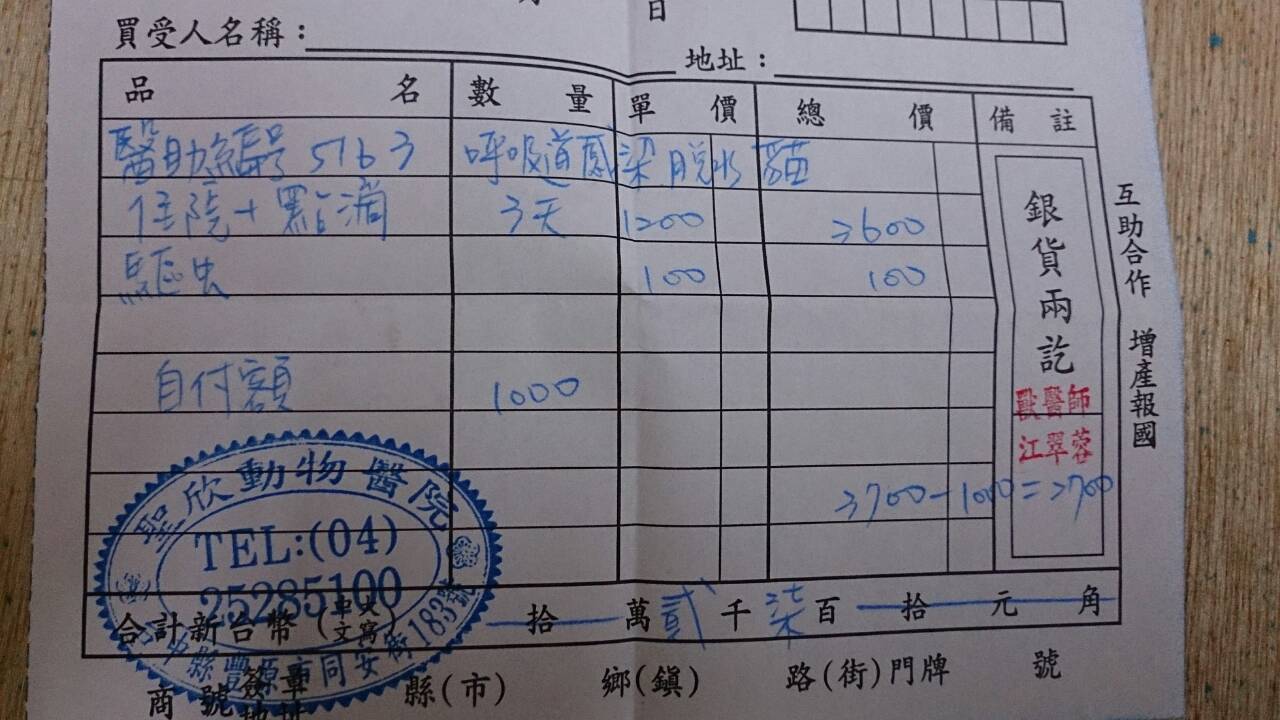 月 日
買受人名稱：
地址：
品名 數量 單價 總價 備註
醫助編號 5163 呼吸道感染脫水 貓
住院+點滴 3天 1200 3600
驅虫 100 100
自付額 1000
3700-1000=2700
銀貨兩訖
獸醫師
江翠蓉
互助合作 增產報國
聖欣動物醫院
TEL:(04)
25285100
縣豐原市同安街183號
合計新台幣(大寫中文) 拾 萬 貳 千 柒 百 拾 元 角
商號 簽章 地址 縣(市) 鄉(鎮) 路(街)門牌 號